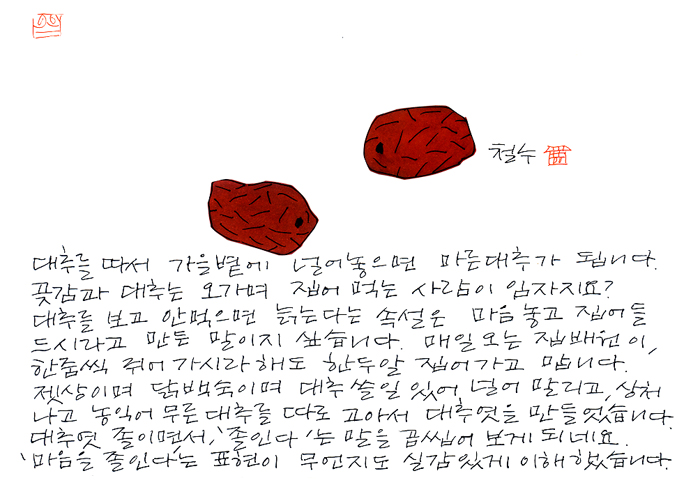 철수
대추를 따서 가을볕에 널어놓으면 마른대추가 됩니다.
곶감과 대추는 오가며 집어 먹는 사람이 임자지요?
대추를 보고 안먹으면 늙는다는 속설은 마음놓고 집어들
드시라고 만든 말이지 싶습니다. 매일 오는 집배원이,
한줌씩 쥐어 가시라 해도 한두알 집어가고 맙니다.
젯상이며 닭백숙이며 대추 쓸일 있어 널어 말리고, 상처
나고 농익어 무른 대추를 따로 고아서 대추엿을 만들었습니다.
대추엿 졸이면서, '졸인다'는 말을 곱씹어 보게 되네요.
'마음을 졸인다'는 표현이 무언지도 실감있게 이해했습니다.